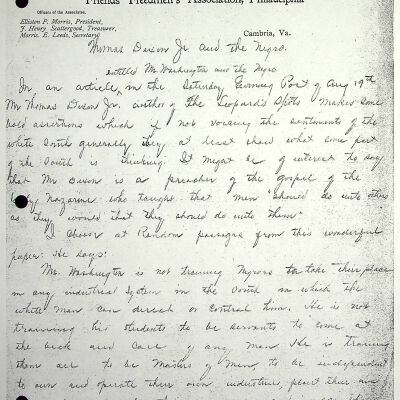 Friends' Freedmen's Association, Philadelphia
Officers of the Association.
Elliston P. Morris, President,
J. Henry Scattergood, Treasurer,
Morris E. Leeds, Secretary
Cambria, Va.
Thomas Dixon Jr. and the Negro.
entitled Mr. Washington and the Negro
In an article, in the Saturday Evening Post of Aug 19th
Mr Thomas Dixon Jr. author of the Leopard's Spots makes some
bold assertions which if not voicing the sentiments of the
white South generally, they at least show what some part
of the South is thinking. It might be of interest to say
that Mr Dixon is a preacher of the gospel of the
Nazarine who taught that men "should do unto others
as they would that they should do unto them"
I choose at Random passages from this wonderful
paper: He says:
Mr. Washington is not training Negroes to take their place
in any industrial system in the South in which the
white man can direct or control him. He is not
training his students to be servants to come at
the beck and call of any man He is training
them all to be Masters of Men, to be independent
to own and operate their own industries, plant their own